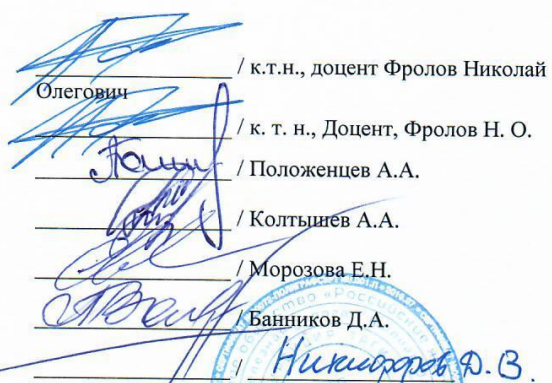 / к.т.н., доцент Фролов Николай
Олегович
/ к. т. н., Доцент, Фролов Н. О.
/ Положенцев А.А.
/ Колтышев А.А.
/ Морозова Е.Н.
/ Банников Д.А.
/ Никифоров Д. В.